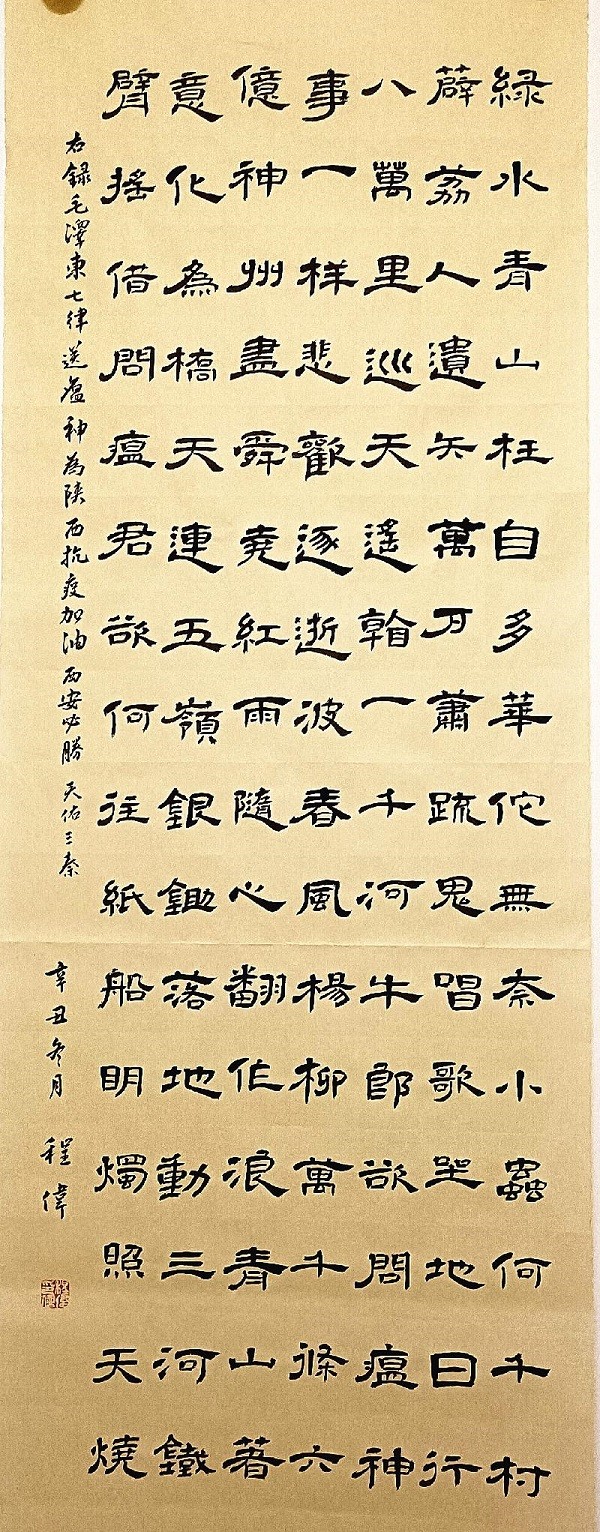 綠水青山枉自多華佗無奈小蟲何千村
薜荔人遺矢萬戶蕭疏鬼唱歌坐地日行
八萬里巡天遙看一千河牛郎欲問瘟神
事一樣悲歡逐逝波春風楊柳萬千條六
億神州盡舜堯紅雨隨心翻作浪青山著
意化為橋天連五嶺銀鋤落地動三河鐵
臂搖借問瘟君欲何往紙船明燭照天燒
右錄毛澤東七律送瘟神為陝西抗疫加油 西安必勝 天佑三秦
辛丑冬月 程偉